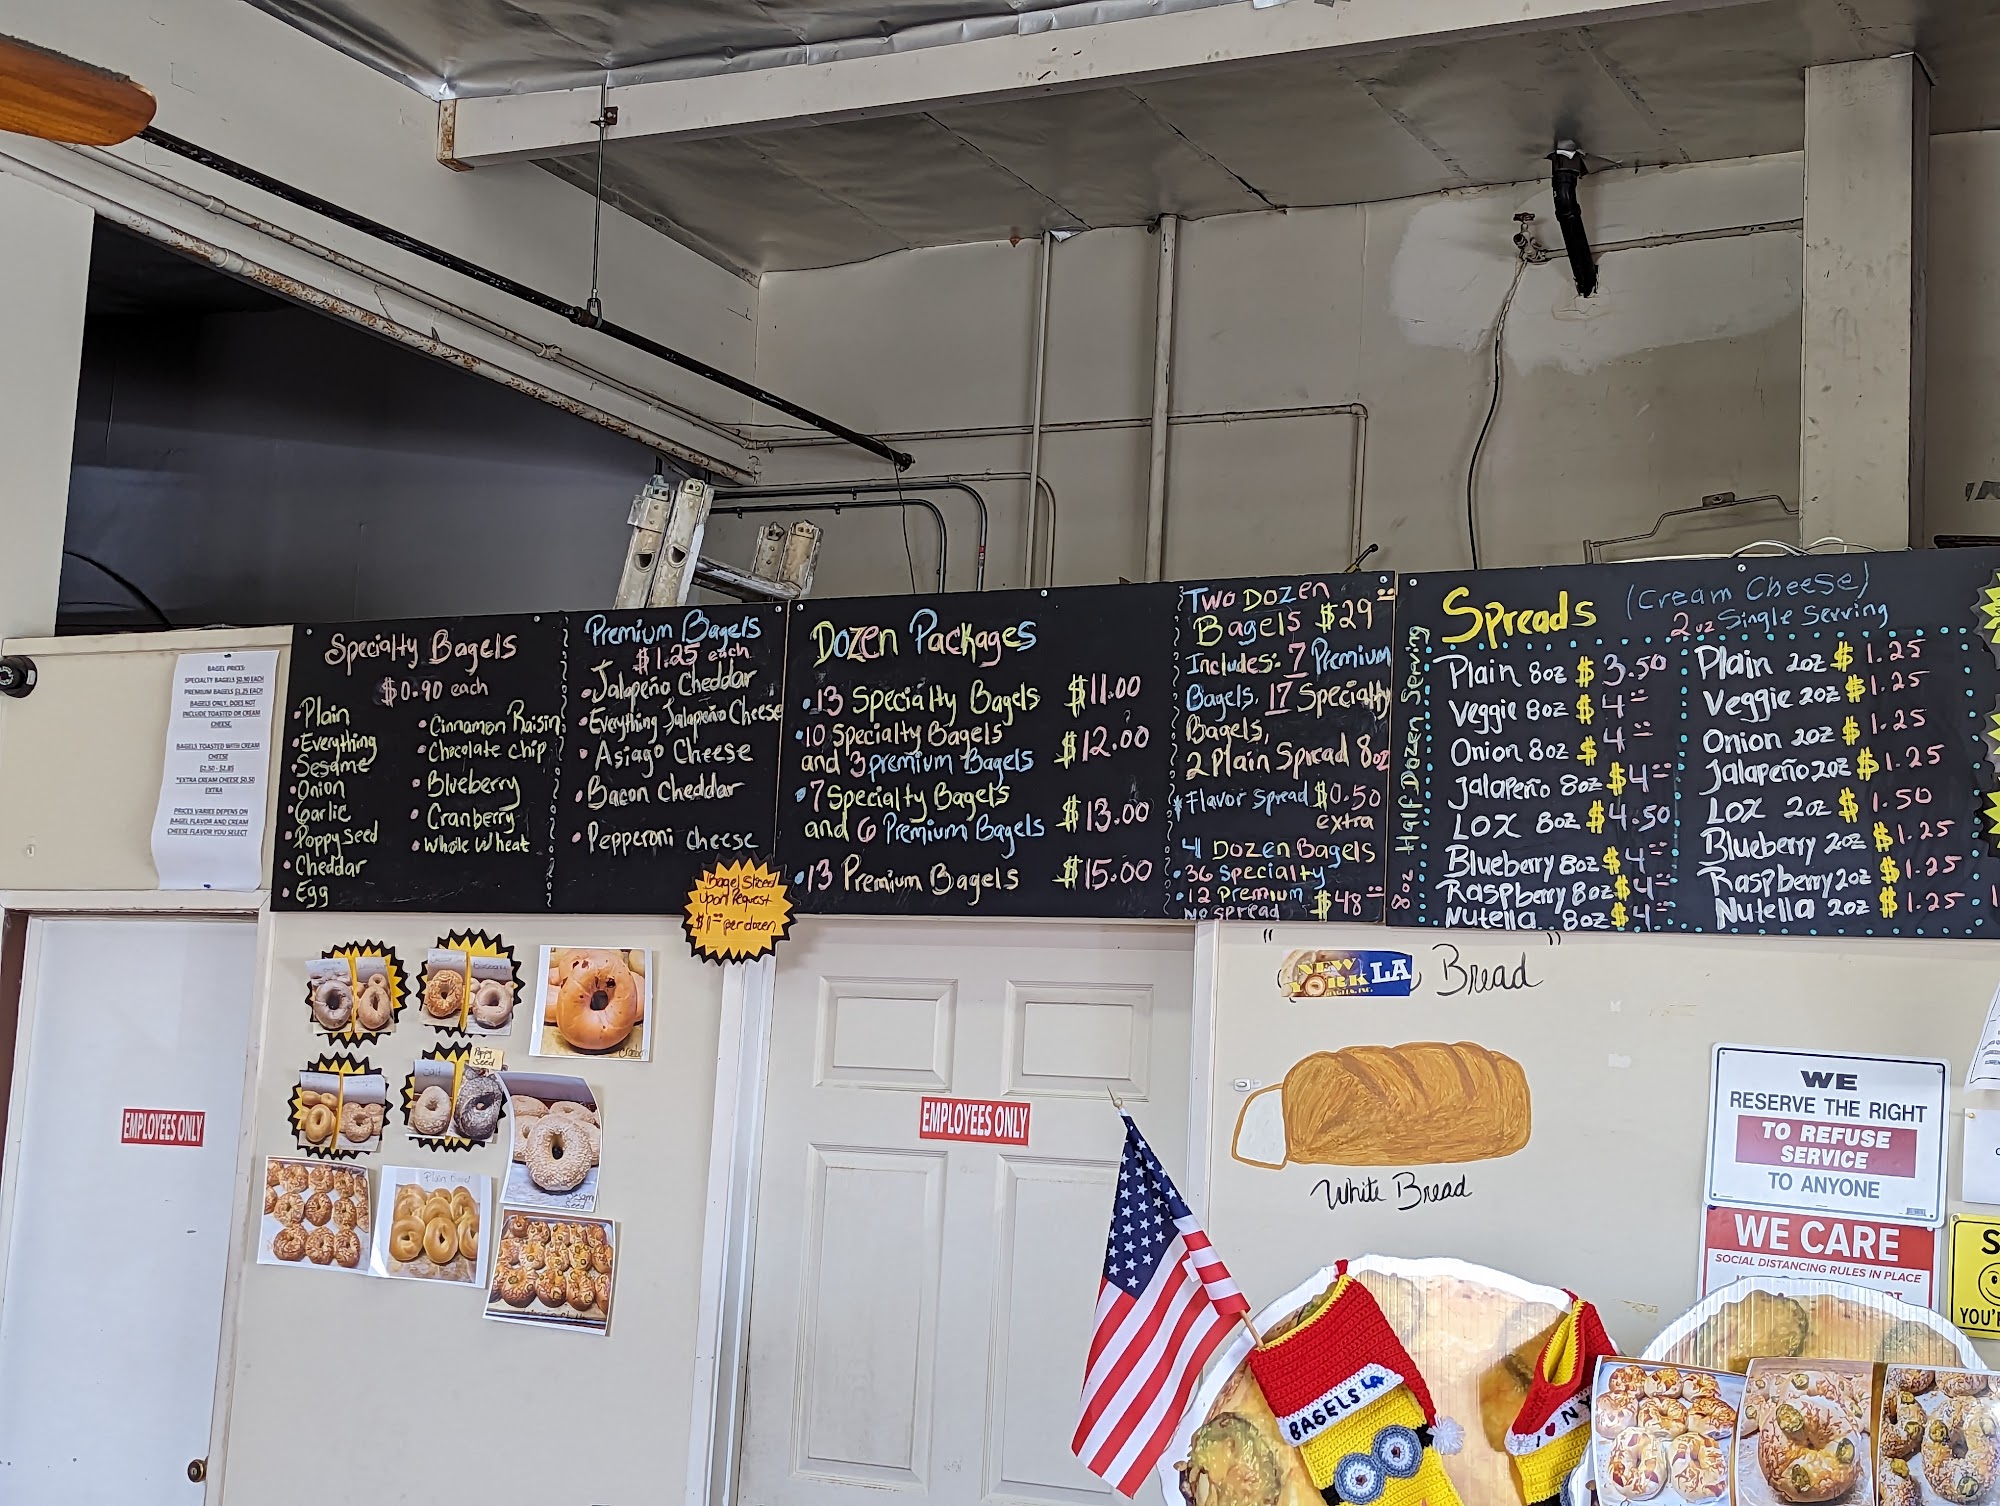 BAGEL PRICES:
SPECIALTY BAGELS $0.90 EACH
PREMIUM BAGELS $1.25 EACH
BAGELS ONLY, DOES NOT
INCLUDE TOASTED OR CREAM
CHEESE.
BAGELS TOASTED WITH CREAM
CHEESE
$2.50 - $2.85
*EXTRA CREAM CHEESE $0.50
EXTRA
PRICES VARIES DEPENS ON
BAGEL FLAVOR AND CREAM
CHEESE FLAVOR YOU SELECT
Specialty Bagels
$0.90 each
•Plain
•Everything
•Sesame
•Onion
•Garlic
•Poppy seed
•Cheddar
•Egg
•Cinnamon Raisin
•Chocolate chip
•Blueberry
•Cranberry
•Whole Wheat
Premium Bagels
$1.25 each
•Jalapeño Cheddar
•Everything Jalapeño Cheese
•Asiago Cheese
•Bacon Cheddar
•Pepperoni cheese
Bagel Sliced
Upon Request
$1.00 per dozen
Dozen Packages
•13 Specialty Bagels $11.00
•10 Specialty Bagels
and 3 premium Bagels $12.00
•7 Specialty Bagels
and 6 Premium Bagels $13.00
•13 Premium Bagels $15.00
Two Dozen
Bagels $29.00
Includes: 7 Premium
Bagels, 17 Specialty
Bagels,
2 Plain Spread 8oz
*Flavor Spread $0.50
extra
4 Dozen Bagels
•36 Specialty
•12 Premium $48.00
No spread
Spreads (Cream Cheese)
2oz Single Serving
8oz Half Dozen Serving
Plain 8oz $3.50
Veggie 8oz $4.00
Onion 8oz $4.00
Jalapeño 8oz $4.00
Lox 8oz $4.50
Blueberry 8oz $4.00
Raspberry 8oz $4.00
Nutella 8oz $4.00
Plain 2oz $1.25
Veggie 2oz $1.25
Onion 2oz $1.25
Jalapeño 2oz $1.25
Lox 2oz $1.50
Blueberry 2oz $1.25
Raspberry 2oz $1.25
Nutella 2oz $1.25
"NEW YORK LA Bread"
BAGELS, INC.
White Bread
EMPLOYEES ONLY
EMPLOYEES ONLY
Poppy
Seed
Salt
Plain Bagel
Sesame
Seed
WE
RESERVE THE RIGHT
TO REFUSE
SERVICE
TO ANYONE
WE CARE
SOCIAL DISTANCING RULES IN PLACE
YOU'R
BAGELS LA
I ♥ NY